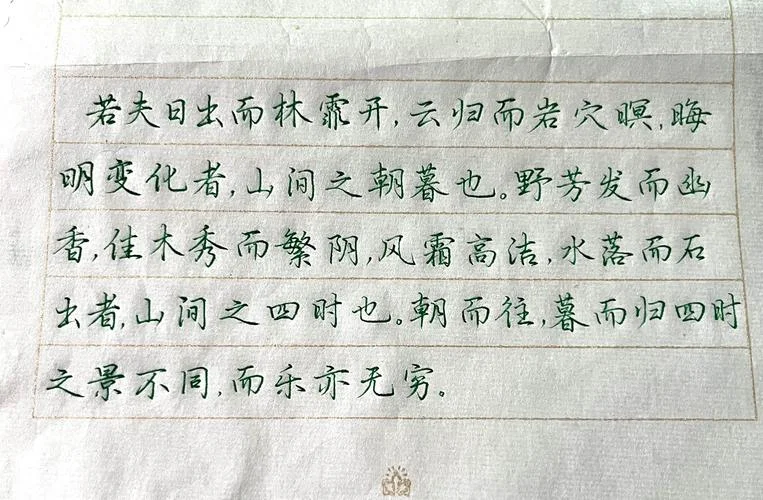 若夫日出而林霏开,云归而岩穴暝,晦
明变化者,山间之朝暮也。野芳发而幽
香,佳木秀而繁阴,风霜高洁,水落而石
出者,山间之四时也。朝而往,暮而归四时
之景不同,而乐亦无穷。